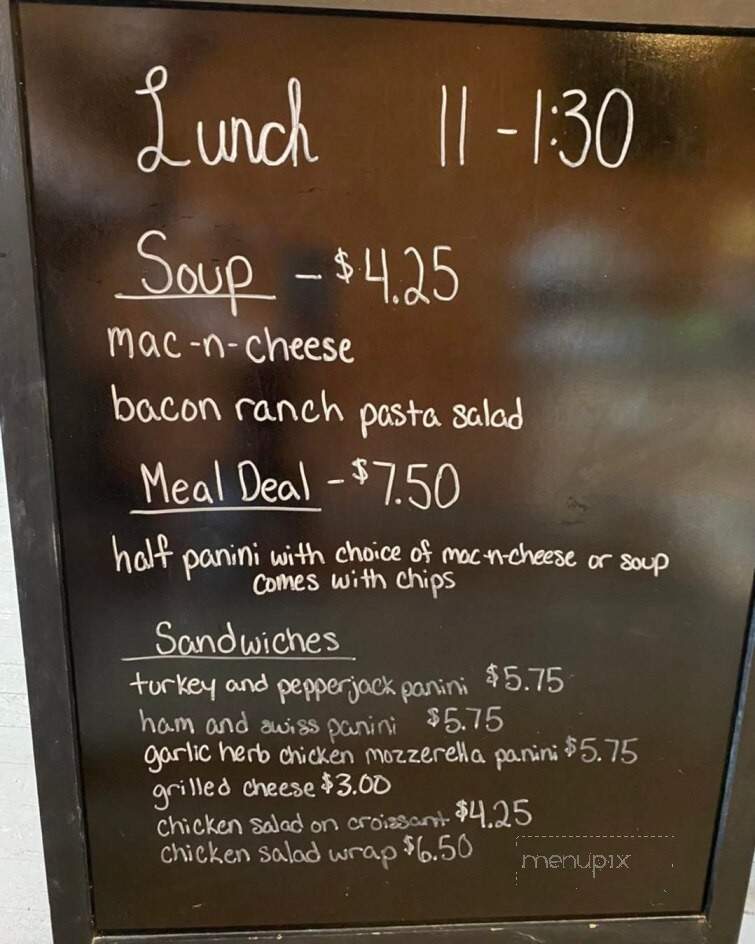 Lunch 11-1:30
Soup - $4.25
mac-n-cheese
bacon ranch pasta salad
Meal Deal - $7.50
half panini with choice of mac-n-cheese or soup
comes with chips
Sandwiches
turkey and pepperjack panini $5.75
ham and swiss panini $5.75
garlic herb chicken mozzerella panini $5.75
grilled cheese $3.00
chicken salad on croissant $4.25
chicken salad wrap $6.50
menupix